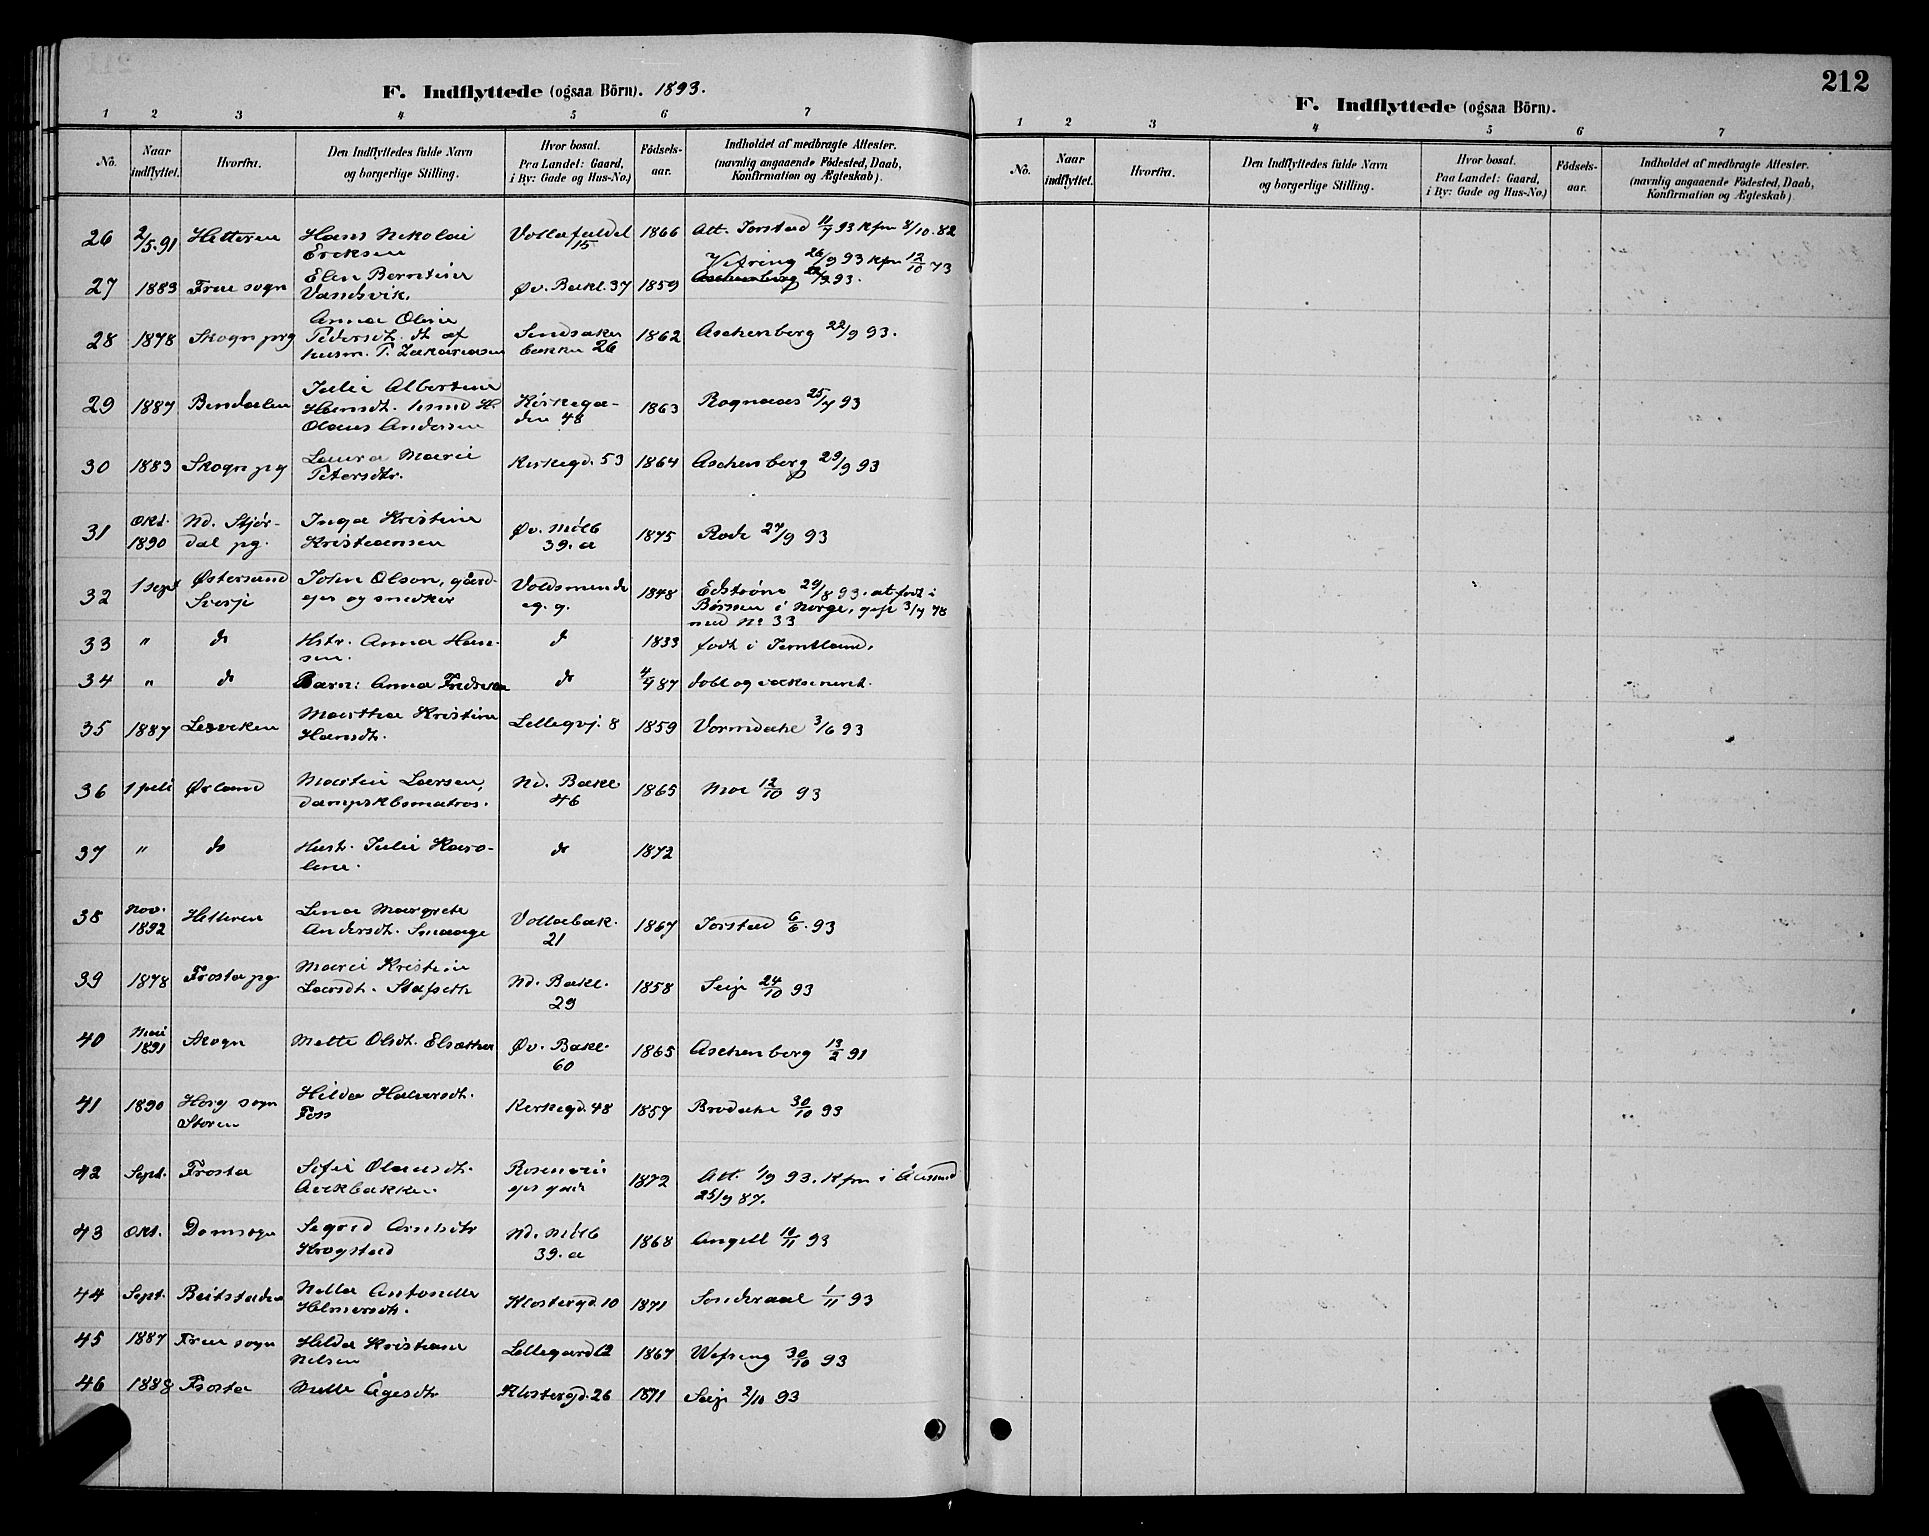 F. Indflyttede (ogsaa Börn). 1893.
1 2 3 4 5 6 7
No. Naar indflyttet. Hvorfra. Den Indflyttedes fulde Navn og borgerlige Stilling. Hvor bosat. Paa Landet: Gaard, i By: Gade og Hus-No.) Födsels-aar. Indholdet af medbragte Attester. (navnlig angaaende Födested, Daab, Konfirmation og Ægteskab).
26 2/5.91 Hitteren Hans Nikolai Vollafaldet 1866 Att. Jorstad 11/7 93 Kfm 8/10.82
Eriksen 15
27 1883 Frue sogn Elen Berntine Øv. Bakl. 37 1859 Vefring 26/9 93 Kfm 12/10 73
Vandsvik. Aschenberg 22/9 93.
28 1878 Skogn prg Anna Oline 1862 Aschenberg 22/9 93.
Pedersdt. dt af bakke 26
husm. P. Zakariasen
29 1887 Bindalen Julie Albertine Kirkega- 1863 Rognaas 25/7 93
Hansdt. den 48
Olaus Andersen
30 1883 Skogn pg Laura Marie Kirkegd. 53 1864 Aschenberg 29/9 93
Petersdtr.
31 Okt. Nd. Stjør- Inga Kristine Øv. Møllb 1875 Rode 27/9 93
1890 dal pg. Kristiansen 39.a
32 1 sept Østersund John Olson, gård- Voldsminde 1848 Edström 29/8 93. at født i
Sverje ejer og snedker eg. g. Børsen i Norge, gift 3/7 78
med No 33
33 " do Hstr. Anna Han- do 1833 født i Jemtland.
sen.
34 " do Barn: Anna Fredrika do 4/9 87 døbt og vaksineret.
35 1887 Lesviken Martha Kristine Lillegd. 8 1859 Vormdahl 3/6 93
Hansdt.
36 1 juli Ørland Martin Larsen, Nd. Bakl 1865 Moe 12/10 93
dampskbsmatros. 46
37 " do Hust. Julie Karo- do 1872
line.
38 Nov. Hitteren Lina Margrete Vollabak. 1867 Jorstad 6/6. 93
1892 Andersdt. Smaage 21
39 1878 Frosta pg Marie Kristine Nd. Bakl. 1858 Seip 24/10 93
Larsdt. Stafseth 29
40 Mai Skogn Mette Olsdt. Elsæther Øv. Bakl. 1865 Aschenberg 13/2 91
1891 60
41 1890 Horg sogn Hilda Halvorsdt. Kirkegd. 48 1857 Brodahl 30/10 93
Støren Foss
42 Sept. Frosta Sofie Olausdt. 1872 Att. 1/9 93. Kfm i Åusund
Aarkbakken. 25/9 87.
43 Okt. Domsogn Sigrid Arntsdtr Nd. Møllb 1868 Angell 10/11 93
Krogstad 39.a
44 Sept. Beitstaden Nella Antonette Klostergd. 10 1871 Sonderaal 1/11 93
Helmersdt.
45 1887 Frue sogn Hilda Kristiane Lillegard 12 1867 Wefring 30/10 93
Nilsen
46 1888 Frosta Mille Ågesdtr Klostergd. 26 1871 Seip 2/10 93
212
F. Indflyttede (ogsaa Börn).
1 2 3 4 5 6 7
No. Naar indflyttet. Hvorfra. Den Indflyttedes fulde Navn og borgerlige Stilling. Hvor bosat. Paa Landet: Gaard, i By: Gade og Hus-No.) Födsels-aar. Indholdet af medbragte Attester. (navnlig angaaende Födested, Daab, Konfirmation og Ægteskab)